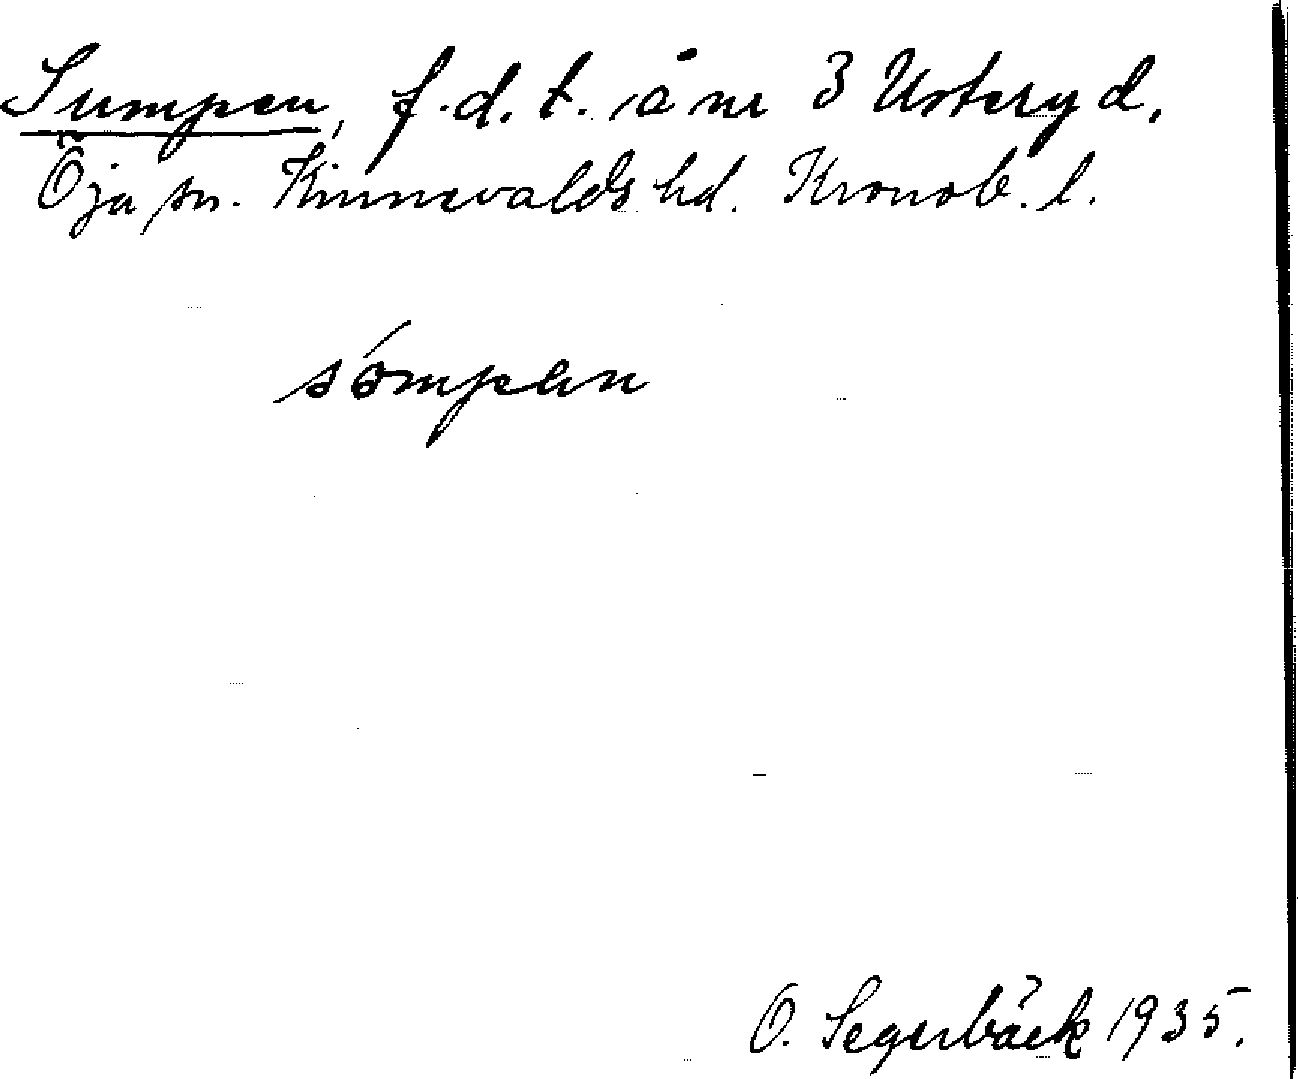 Sumpen, f.d.t. å nr 3 Usteryd.
Öja sn. Kinnevalds hd. Kronob. l.
sómpen
O. Segerbäck 1935.